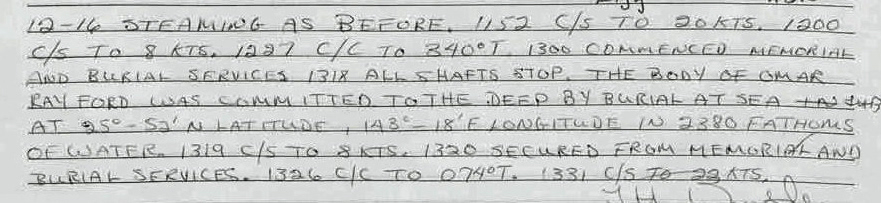 12-16 STEAMING AS BEFORE. 1152 C/S TO 20 KTS. 1200
C/S TO 8 KTS. 1227 C/C TO 340°T. 1300 COMMENCED MEMORIAL
AND BURIAL SERVICES 1318 ALL SHAFTS STOP. THE BODY OF OMAR
RAY FORD WAS COMMITTED TO THE DEEP BY BURIAL AT SEA
AT 25°-52'N LATITUDE, 143°-18'E LONGITUDE IN 2380 FATHOMS
OF WATER. 1319 C/S TO 8 KTS. 1320 SECURED FROM MEMORIAL AND
BURIAL SERVICES. 1326 C/C TO 074°T. 1331 C/S TO 22 KTS.